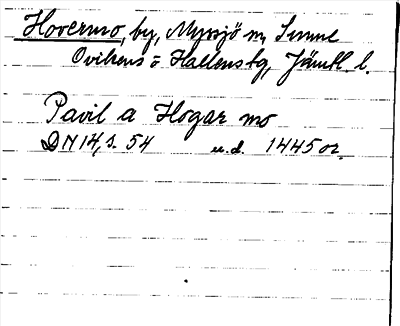 Hovermo, by, Myssjö sn, Sunne
Ovikens o Hallens tg, Jämtl. l.
Pavil a Hogar mo
DN 14, s. 54 u.d. 1445 or.